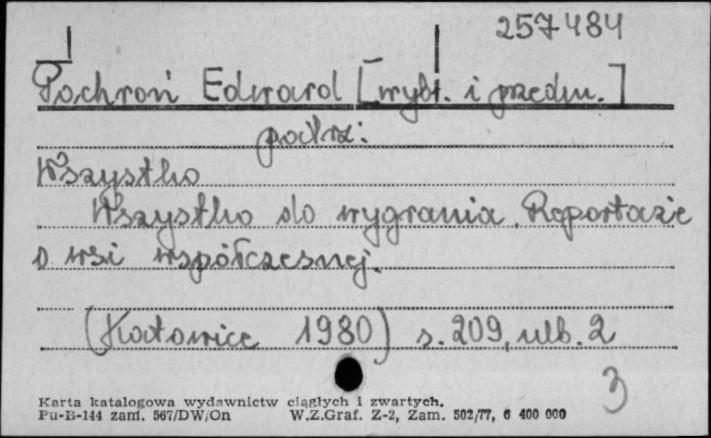 257484
Pochroń Edward [wybr. i przedm.]
patrz:
Wszystko
Wszystko do wygrania. Reportaże
o wsi współczesnej.
(Katowice 1980) s. 209, nlb. 2
3
Karta katalogowa wydawnictw ciągłych i zwartych.
Pu-B-144 zam. 567/DW/On W.Z.Graf. Z-2, Zam. 502/77, 6 400 000